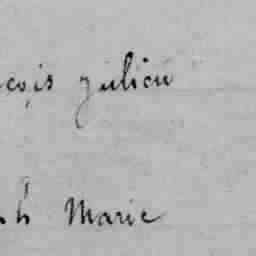 çois Julien
h Marie